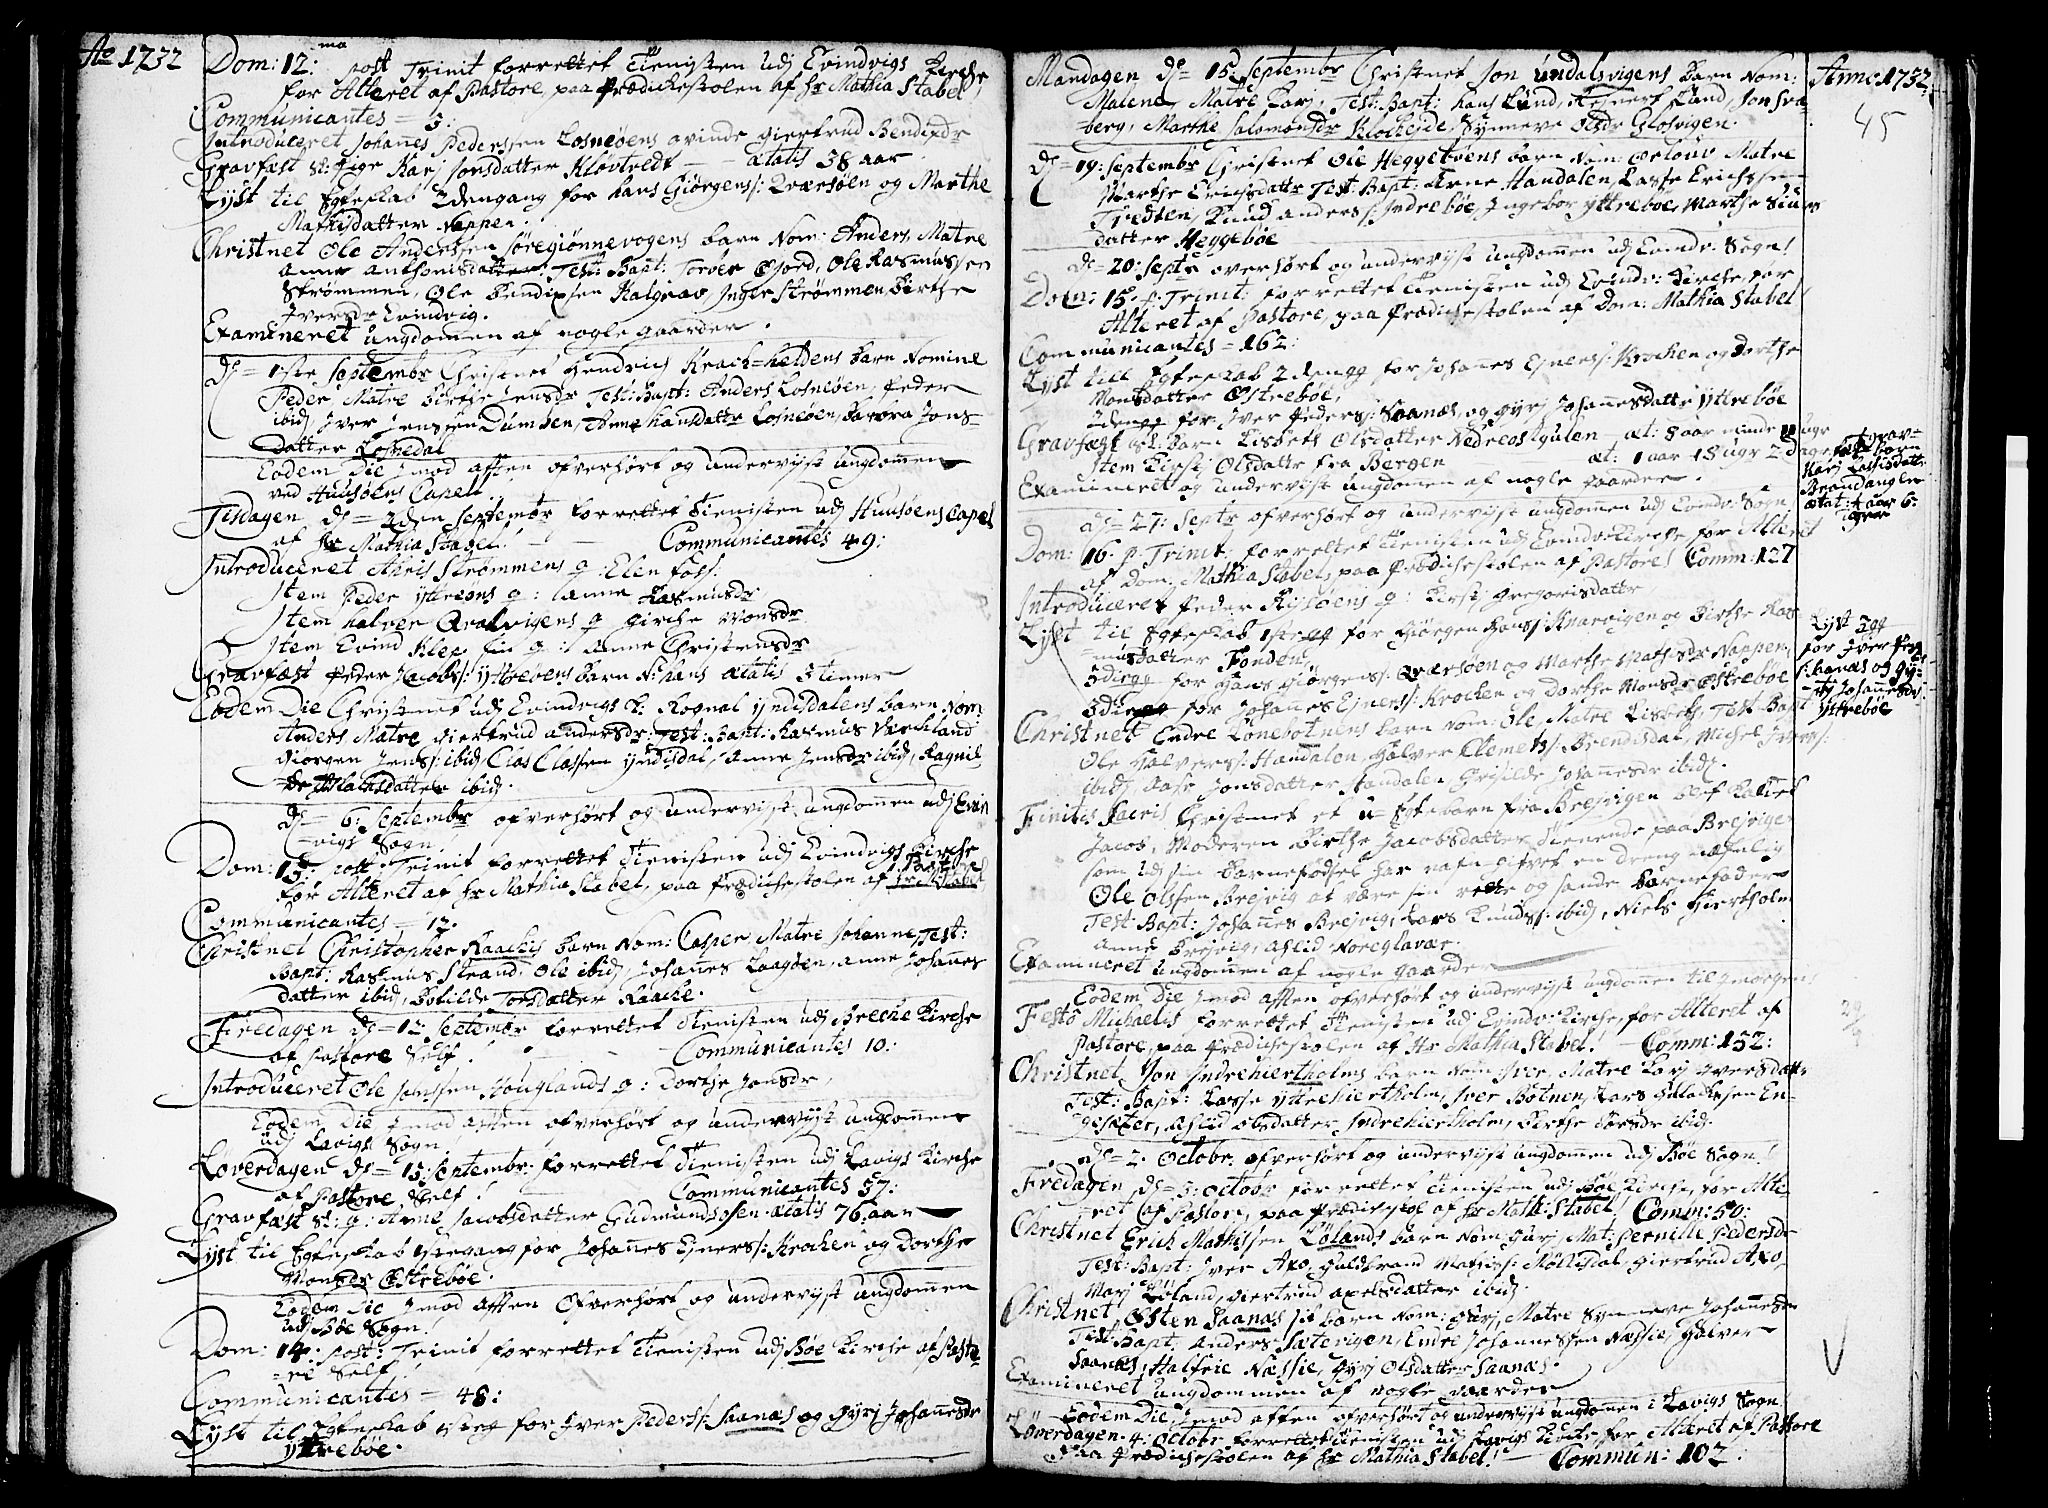 Ao 1732
Dom: 12:ma post Trinit forrettet Tienisten udj Evindvigs Kirche
for Alteret af Pastore, paa Prædickestolen af Hr Mathia Stabel,
Communicantes = 3:
Introduceret Johanes Pederssen Losneøens qvinde giertrud Bendixdr
Gravfæst Sl: Pige Karj Jonsdatter Kløvtvedt — ætatis 38 aar
Lyst til Egteskab 2den gang for Hans Giørgens: Qværøen og Marthe
Mathisdatter Nappen.
Christnet Ole Anderssen Søregiønnevogens barn Nom: Anders, Matre
Anne Anthonisdatter: Test: Bapt: Fiord, Ole Rasmussen
Strømmen, Ole Bendixsen Kalgrav, Inger Strømmen, Birthe
Iversdr Evindvig.
Examineret ungdomen af nogle gaarder.
d = 1ste Septembr Christnet Hendrich Krach=heldens barn Nomine
Peder, Matre Birthe Jensdr Test: Bapt: Anders Losneøen, Peder
ibid, Iver Jenssen Dumben, Anne Hansdatter Losneøen, Barbra Jons-
datter Losnedal
Eodem Die imod afften ofverhørt og undervijst ungdommen
ved Huusøens Capel.
Tisdagen d = 2den Septembr forrettet Tienisten udj Huusøens Capel
af Hr Mathia Stabel! — Communicantes 49:
Introduceret Strømmens q: Elen
Item Peder q: Anne Rasmusdr
Item Halver q Girthe Monsdr
Item Evind Klep sin q: Anne Christensdr
Gravfæst Peder Jacobs: Yttreøens barn N: Hans ætatis 3 timer
Eodem Die Christnet udj Evindvigs K: Rognal Yndisdalens barn Nom
Anders Matre giertrud Andersdr: Test: Bapt: Rasmus
Giørgen Jens: ibid, Clas Classen Yndisdal, Anne Jensdr ibid, Ragnil-
de ibid.
d = 6: Septembr ofverhørt og undervijst ungdommen udj Evin
=vigs Sogn.
Dom: 13: post Trinit forrettet Tienisten udj Evindvigs Kirche
for Alteret af Hr Mathia Stabel, paa Prædickestolen af
Communicantes = 17.
Christnet Christopher Raackis barn Nom: Casper, Matre Johanne, Test:
Bapt: Rasmus Strand, Ole ibid, Johannes Laagøen, Anne Johannes
datter ibid, Botilde Torsdatter Raacke.
Fredagen d = 12 Septembr forrettet Tienisten udj Breche Kirche
af Pastore Self! — Communicantes 10:
Introduceret Ole Jonssen Houglands q: Dorthe Jonsdr,
Eodem Die imod aften ofverhørt og undervijst ungdommen
udj Lavigs Sogn!
Løverdagen d = 13: Septembr: forrettet Tienisten udj Lavigs Kirche
af Pastore Self! — Communicantes 37:
Gravfæst Sl: q: Anne Jacobsdatter Gudmunds ætatis 76 aar
Lyst til Egteskab 1ste gang for Johanes Ejners: Krochen og Dorthe
Monsdr Østrebøe.
Eodem Die imod Aften Ofverhørt og undervijst ungdommen
udj Bøe Sogn!
Dom: 14: post: Trinit forrettet Tienisten udj Bøe Kirche af Pasto
=re Self.
Communicantes = 48:
Lyst til Egteskab 1steg for Iver Peders: Saanæs og Gyrj Johannesdr
Yttrebøe.
Anno 1732
45
Mandagen d = 15 Septembr Christnet Jon Undalsvigens barn Nom:
Malene, Matre Karj, Test: Bapt: Hans Lund, Rejnert Lund, Jon Sva
berg, Marthe Salomonsdr Klockejde, Synneve Olsdr Glosvigen.
d = 19: Septembr Christnet Ole Heggebøens barn Nom: Matre
Marthe Erichsdatter Test: Bapt: Arne Handalen, Lasse Erichssen
Tredten, Knud Anders: Indrebøe, Ingebor Yttrebøe, Marthe Siurs
datter Heggebøe
d = 20: Septr overhørt og undervijst ungdommen udj Evindv: Sogn!
Dom: 15. p. Trinit, forrettet Tienisten udj Evindv: Kirche, for
Alteret af Pastore, paa Prædichestolen af Dom: Mathia Stabel
Communicantes = 162:
Lyst till Egteskab 2den gg for Johanes Ejners: Krochen og Dorthe
Monsdatter Østrebøe,
2den gg for Iver Peders: Saanæs, og Gyrj Johanesdatter Yttrebøe
Gravfæst Sl: barn Lisbets Olsdatter Nedreostgulen æt: 8 aar minde 11 ugr
Item Kirstj Olsdatter fra Bergen æt: 1 aar 18 ugr 2 dage
Examineret og undervijst ungdomen af nogle gaarder.
d = 27: Septr ofverhørt og undervijst ungdomen udj Evindv: Sogn
Dom: 16. p. Trinit: forrettet Tienisten udj Evindv: Kirche for Alteret
af Dom. Mathia Stabel, paa Prædichestolen af Pastore! Comm: 127
Introduceret Peder Risløens q: Kirstj Gregorisdatter
Lyst til Egteskab 1ste gg for Giørgen Hans: Knarvigen og Birthe Ras-
=musdatter Fonden
3die gg for Hans Giørgens: Qværøen og Marthe Mathisdr Nappen,
3die gg for Johanes Ejners: Krochen og Dorthe Monsdr Østrebøe
Christnet Endre Lønebotnens barn Nom: Ole, Matre Lisbeth, Test: Bapt
Ole Halvers: Handalen, Halver Clemets: Brendisdal, Michel Ivers:
ibid, Aase Jonsdatter Handalen, Grisilde Johannesdr ibid.
Finitis Sacris Christnet et u=Egtebarn fra Brejvigen blef kaldet
Jacob, Moderen Birthe Jacobsdatter tienende paa Brejvigen
som udj sin barnefødsel har nafn gifvet en dreng nafnlig
Ole Olssen Brejvig at være sin rette og sande barnefader
Test: Bapt: Johannes Brejvig, Lars Knuds: ibid, Niels Hiertholm
Anne Brejvig, Aslid Noreglavær.
Examineret ungdommen af nogle gaarder
Eodem Die imod afften ofverhørt og undervijst ungdomen til imorgen
Festo Michaelis forrettet Tienisten udj Evindv: Kirche, for Alteret af
Pastore, paa Prædichestolen af Hr Mathia Stabel! — Comm: 152:
Christnet Jon Indrehiertholms barn Nom: Iver, Matre Karj Iversdatter
Test: Bapt: Lasse Yttrehiertholm, Iver Botnen, Lars En-
Aslid Olsdatter Indrehiertholm, Birthe Larsdr ibid.
d = 2. Octobr. ofverhørt og undervijst ungdomen udj Bøe Sogn!
Fredagen d = 3: Octobr forrettet Tienisten udj Bøe Kirche, for Alte
=ret af Pastore, paa Prædichstol af Hr Math: Stabel! Comm: 50:
Christnet Erich Mathissen Løland barn Nom: Gurj, Mat: Pernille Pedersdr
Test: Bapt: Iver Axo, Guldbrand Mathiss: Møllisdal, Giertrud Axo,
Marj Løland, Giertrud Axelsdatter ibid.
Christnet Østen Saanæs sit barn Nom: Gurj, Matre Synneve Johannesdr
Test: Bapt: Anders Sætevigen, Endre Johannessen Næssie, Halver
Saanæs, Halfrie Næssie, Gyrj Olsdatter Saanæs.
Examineret ungdommen af nogle gaarder
Eodem Die, imod aften ofverhørt og undervijst ungdomen i Lavigs Sogn
Løverdagen 4. Octobr forrettet Tienisten udj Lavigs Kirche for Alteret af Pastore
paa Prædichestolen af Hr Mathia Stabel! — Commun: 102:
Grav-
fæst barn
Karj Lassisdatter
Brandanger
ætat: 4 aar 6:
uger
Lyst 3gg
for Iver Peder
s: Saanæs og Gy-
rj Johannesdr
Yttrebøe
29/9